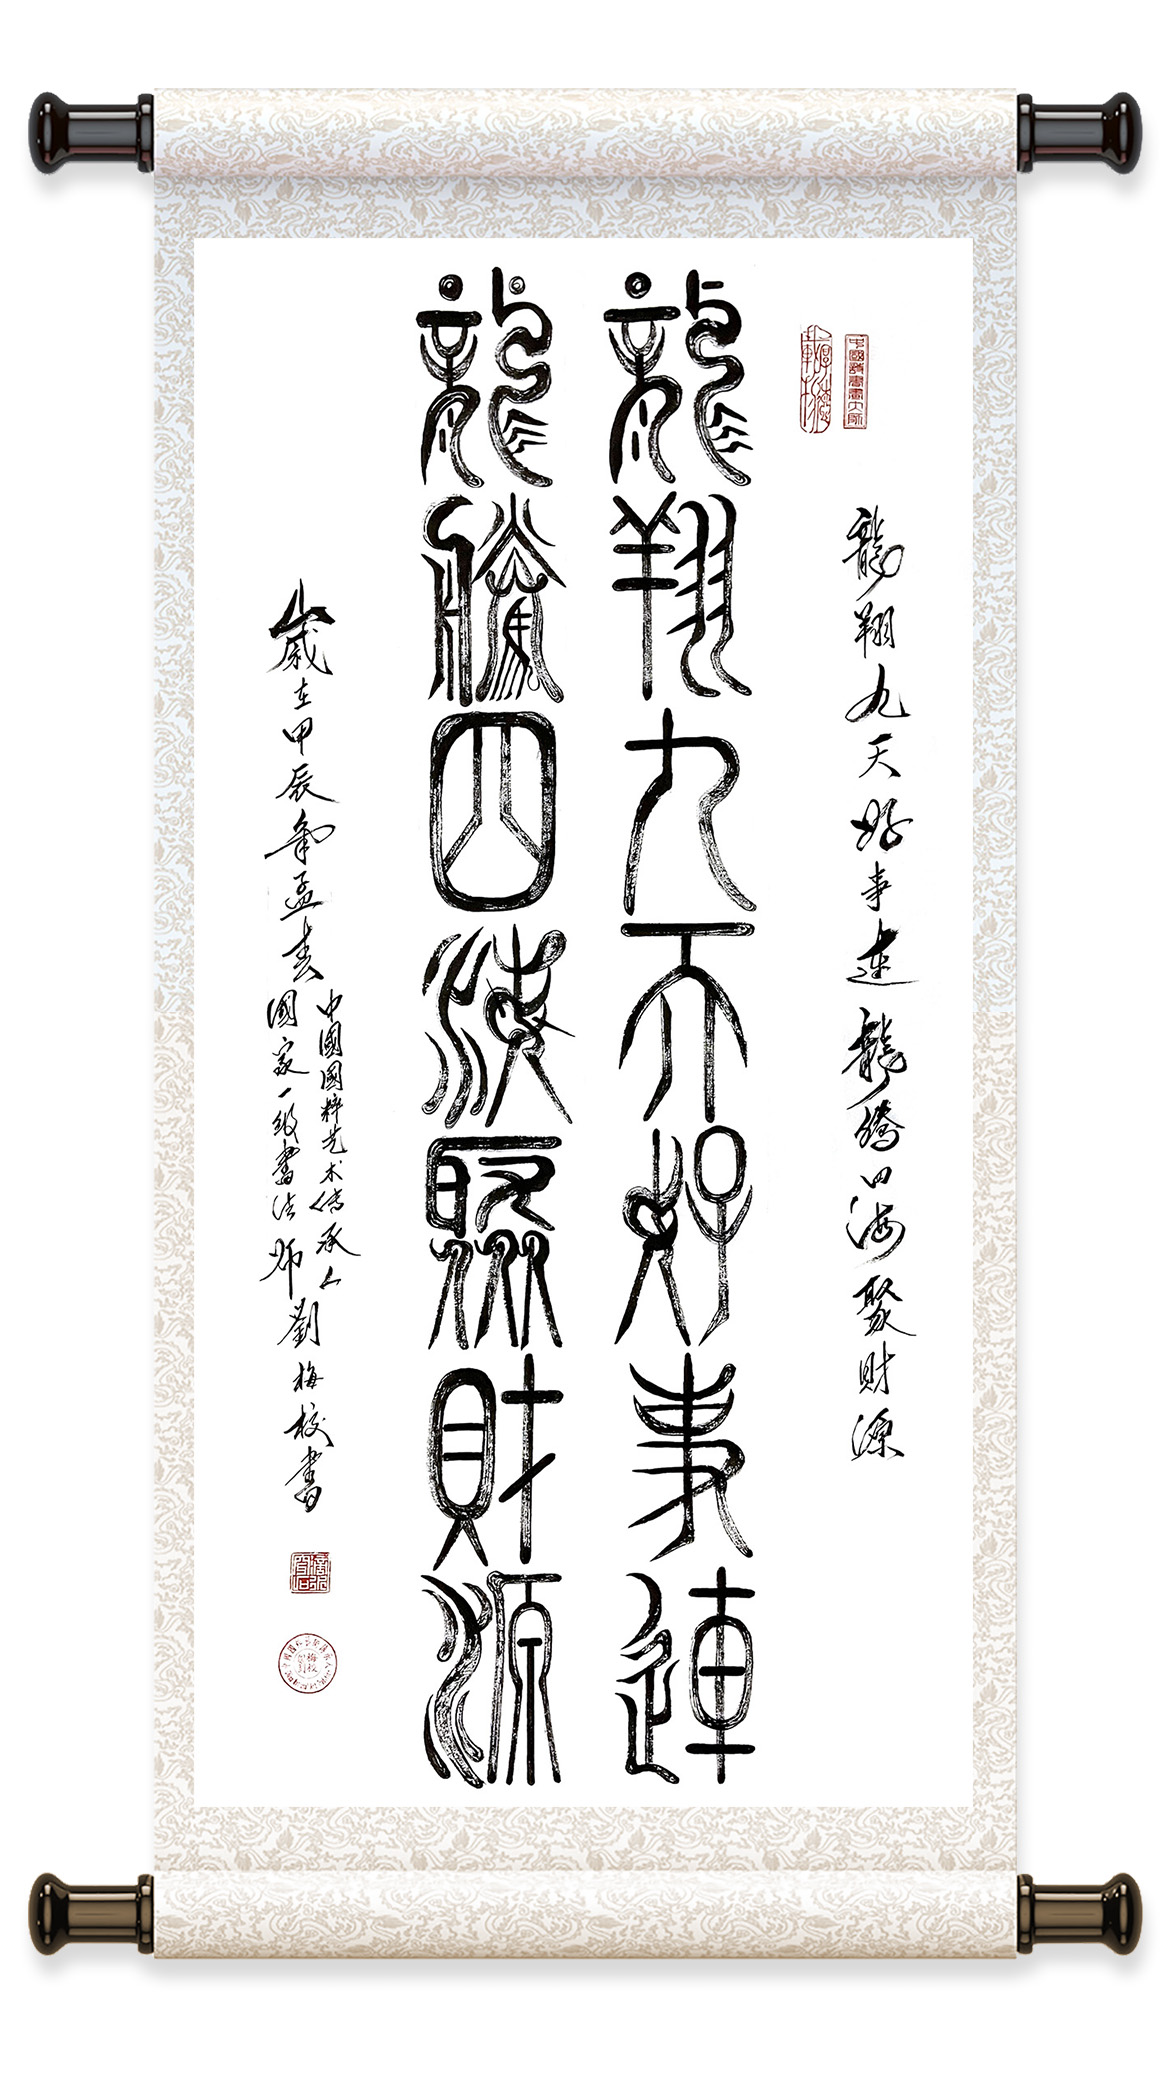 中國詩書畫大家
厚德載物
龍翔九天好事連龍騰四海聚財源
龍翔九天好事連
龍騰四海聚財源
歲在甲辰年孟春
中國國粹艺术传承人
國家一级書法师
劉梅校書